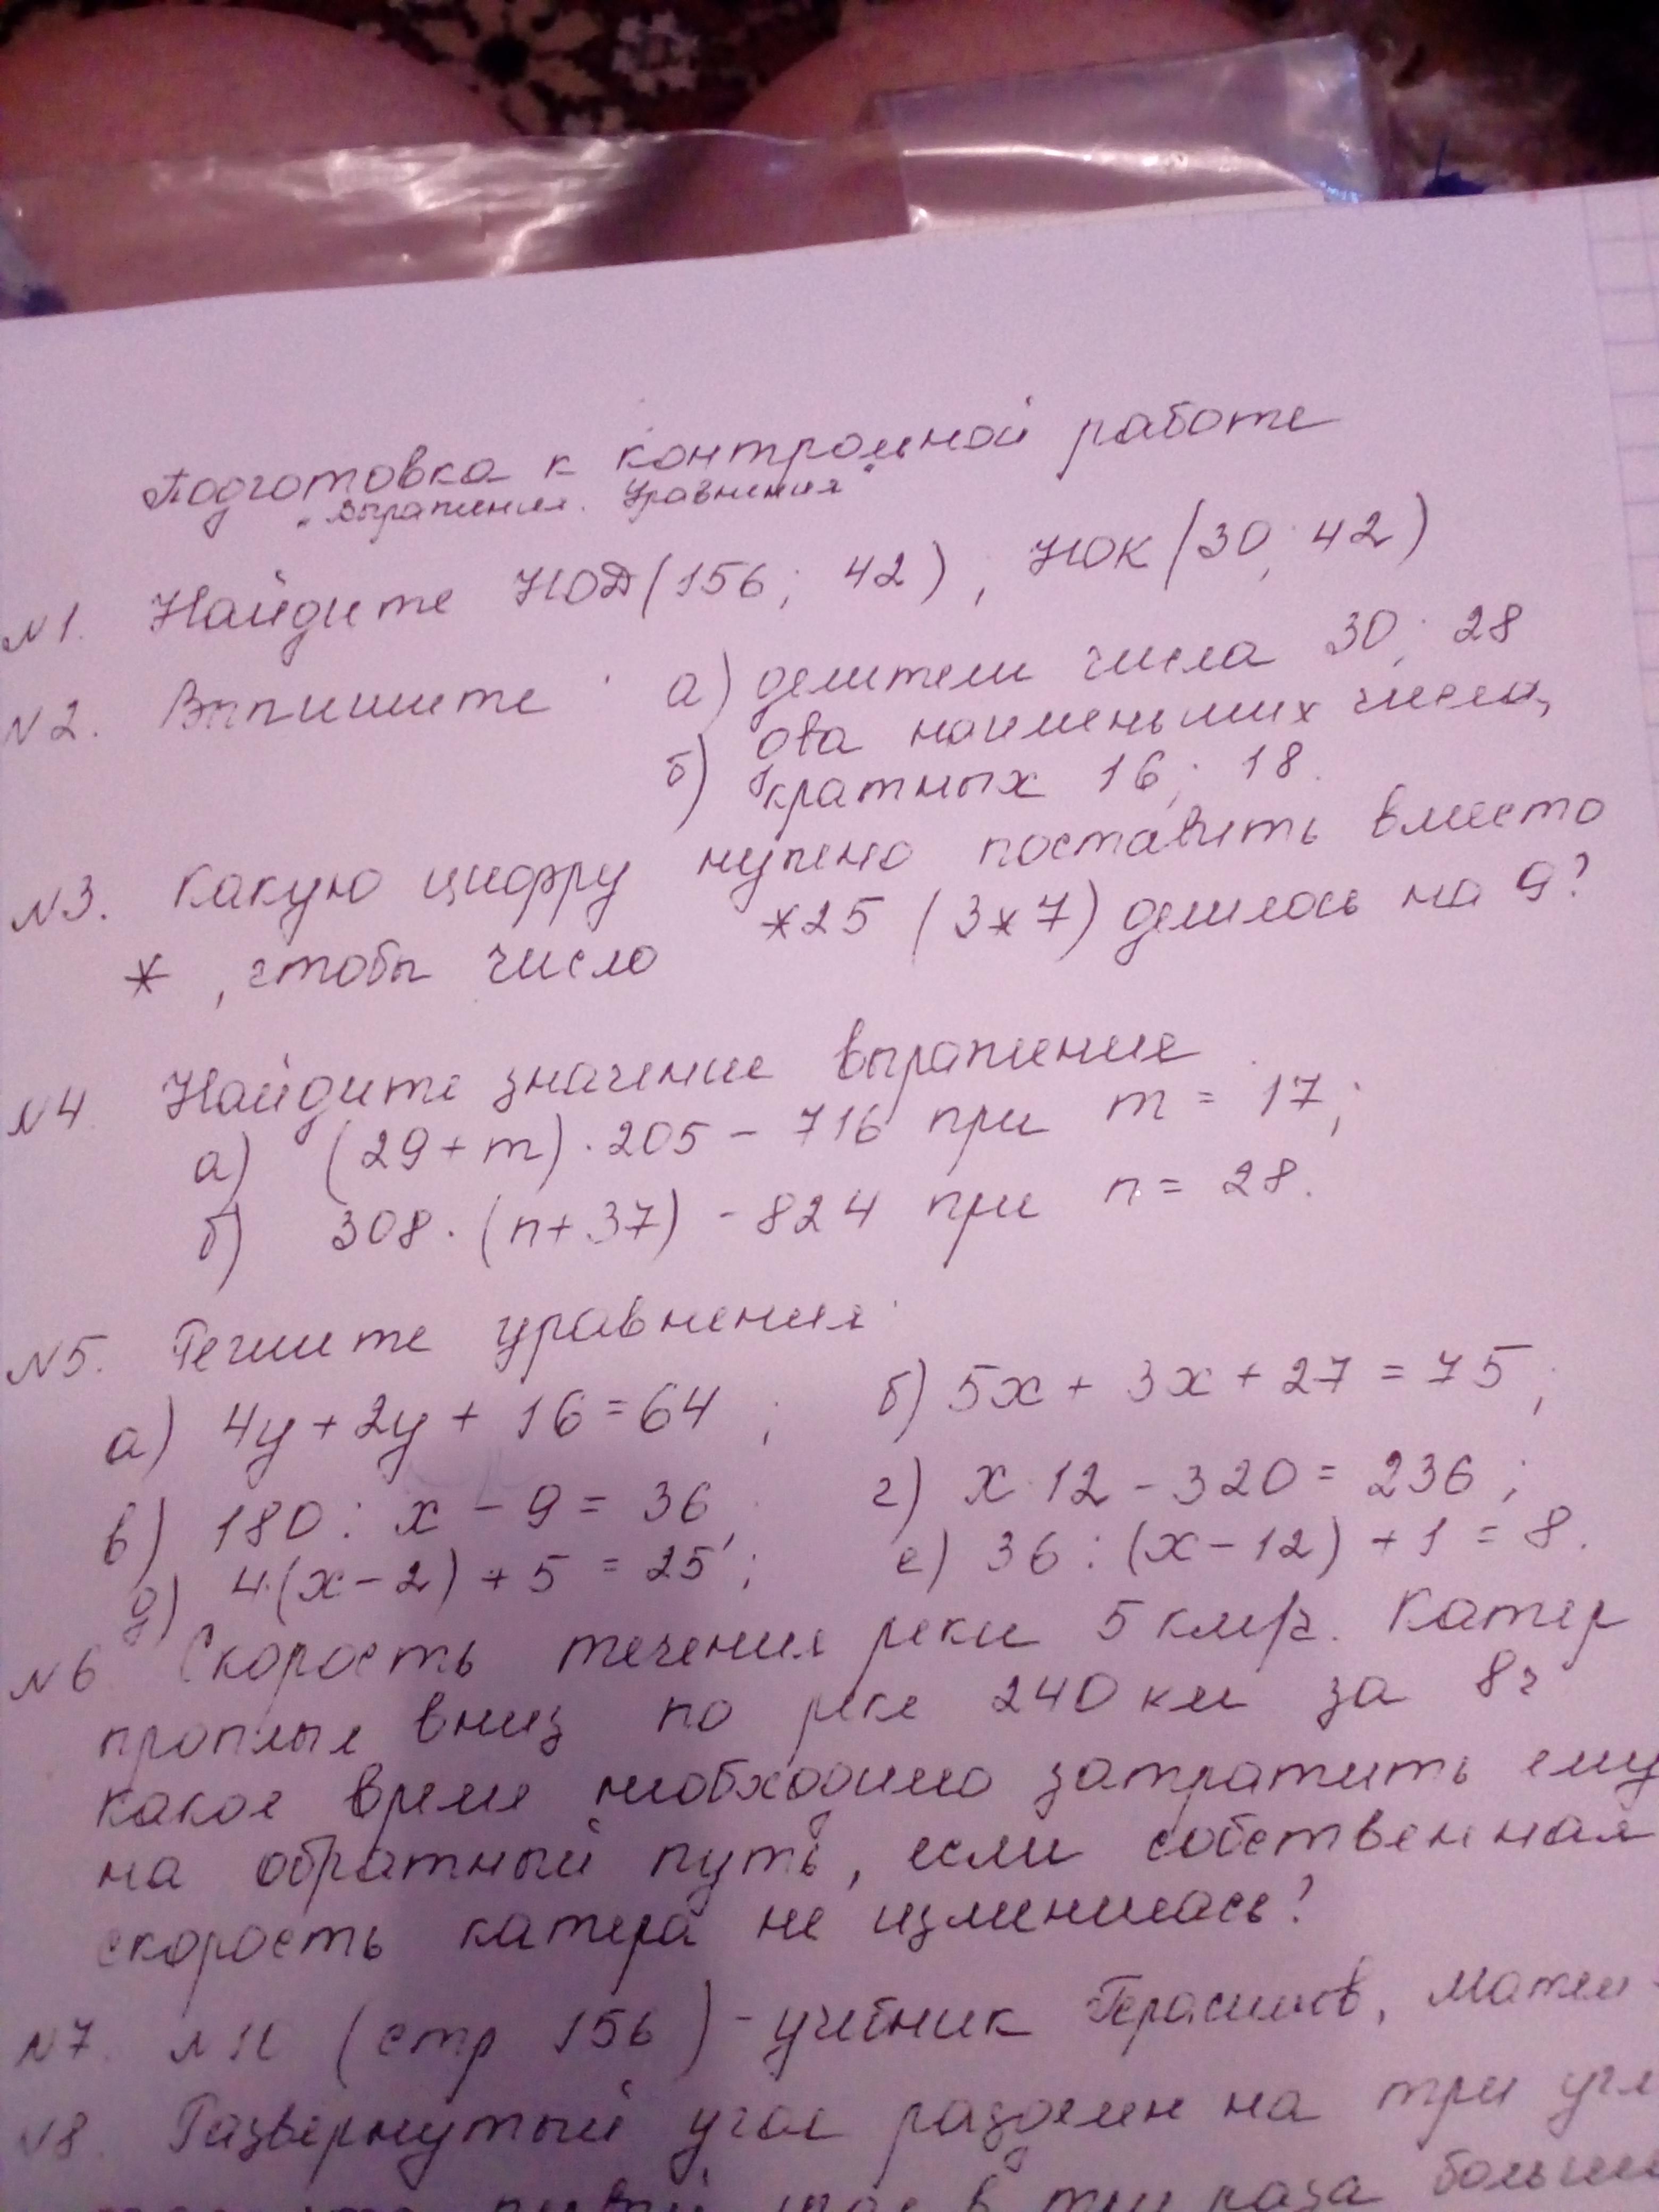 Подготовка к контрольной работе
"Выражения. Уравнения"
N1. Найдите НОД(156; 42), НОК(30; 42)
N2. Выпишите: а) делители числа 30; 28
б) два наименьших числа,
кратных 16; 18.
N3. Какую цифру нужно поставить вместо
*, чтобы число *25 (3*7) делилось на 9?
N4. Найдите значение выражения
а) (29+m)·205-716 при m = 17;
б) 308·(n+37)-824 при n = 28.
N5. Решите уравнения:
а) 4y+2y+16=64; б) 5x+3x+27=75;
в) 180:x-9=36; г) x·12-320=236;
д) 4·(x-2)+5=25; е) 36:(x-12)+1=8.
N6 Скорость течения реки 5 км/ч. Катер
проплыл вниз по реке 240 км за 8ч
какое время необходимо затратить ему
на обратный путь, если собственная
скорость катера не изменилась?
N7. (стр 156) - учебник Герасимов, матем-
N8. Развернутый угол разделен на три угл
первый угол в три раза больше